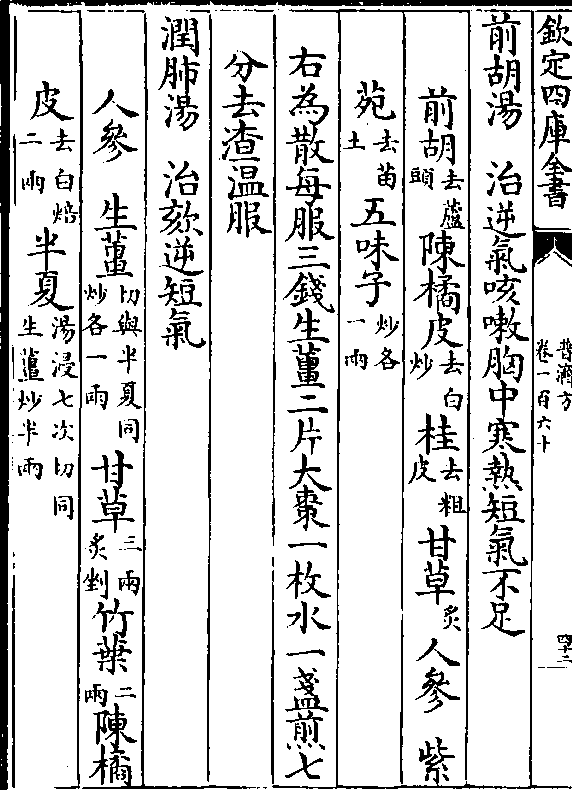 欽定四庫全書
普濟方
卷一百六十
四十二
前胡湯　治逆氣咳嗽胸中寒熱短氣不足
前胡去蘆頭　陳橘皮去白炒　桂去粗皮　甘草炙　人參　紫
苑去苗土　五味子炒各一兩
右為散每服三錢生薑二片大棗一枚水一盞煎七
分去渣温服
潤肺湯　治欬逆短氣
人參　生薑切與半夏同炒各一兩　甘草三兩炙剉　竹葉二兩　陳橘
皮去白焙二兩　半夏湯浸七次切同生薑炒半兩